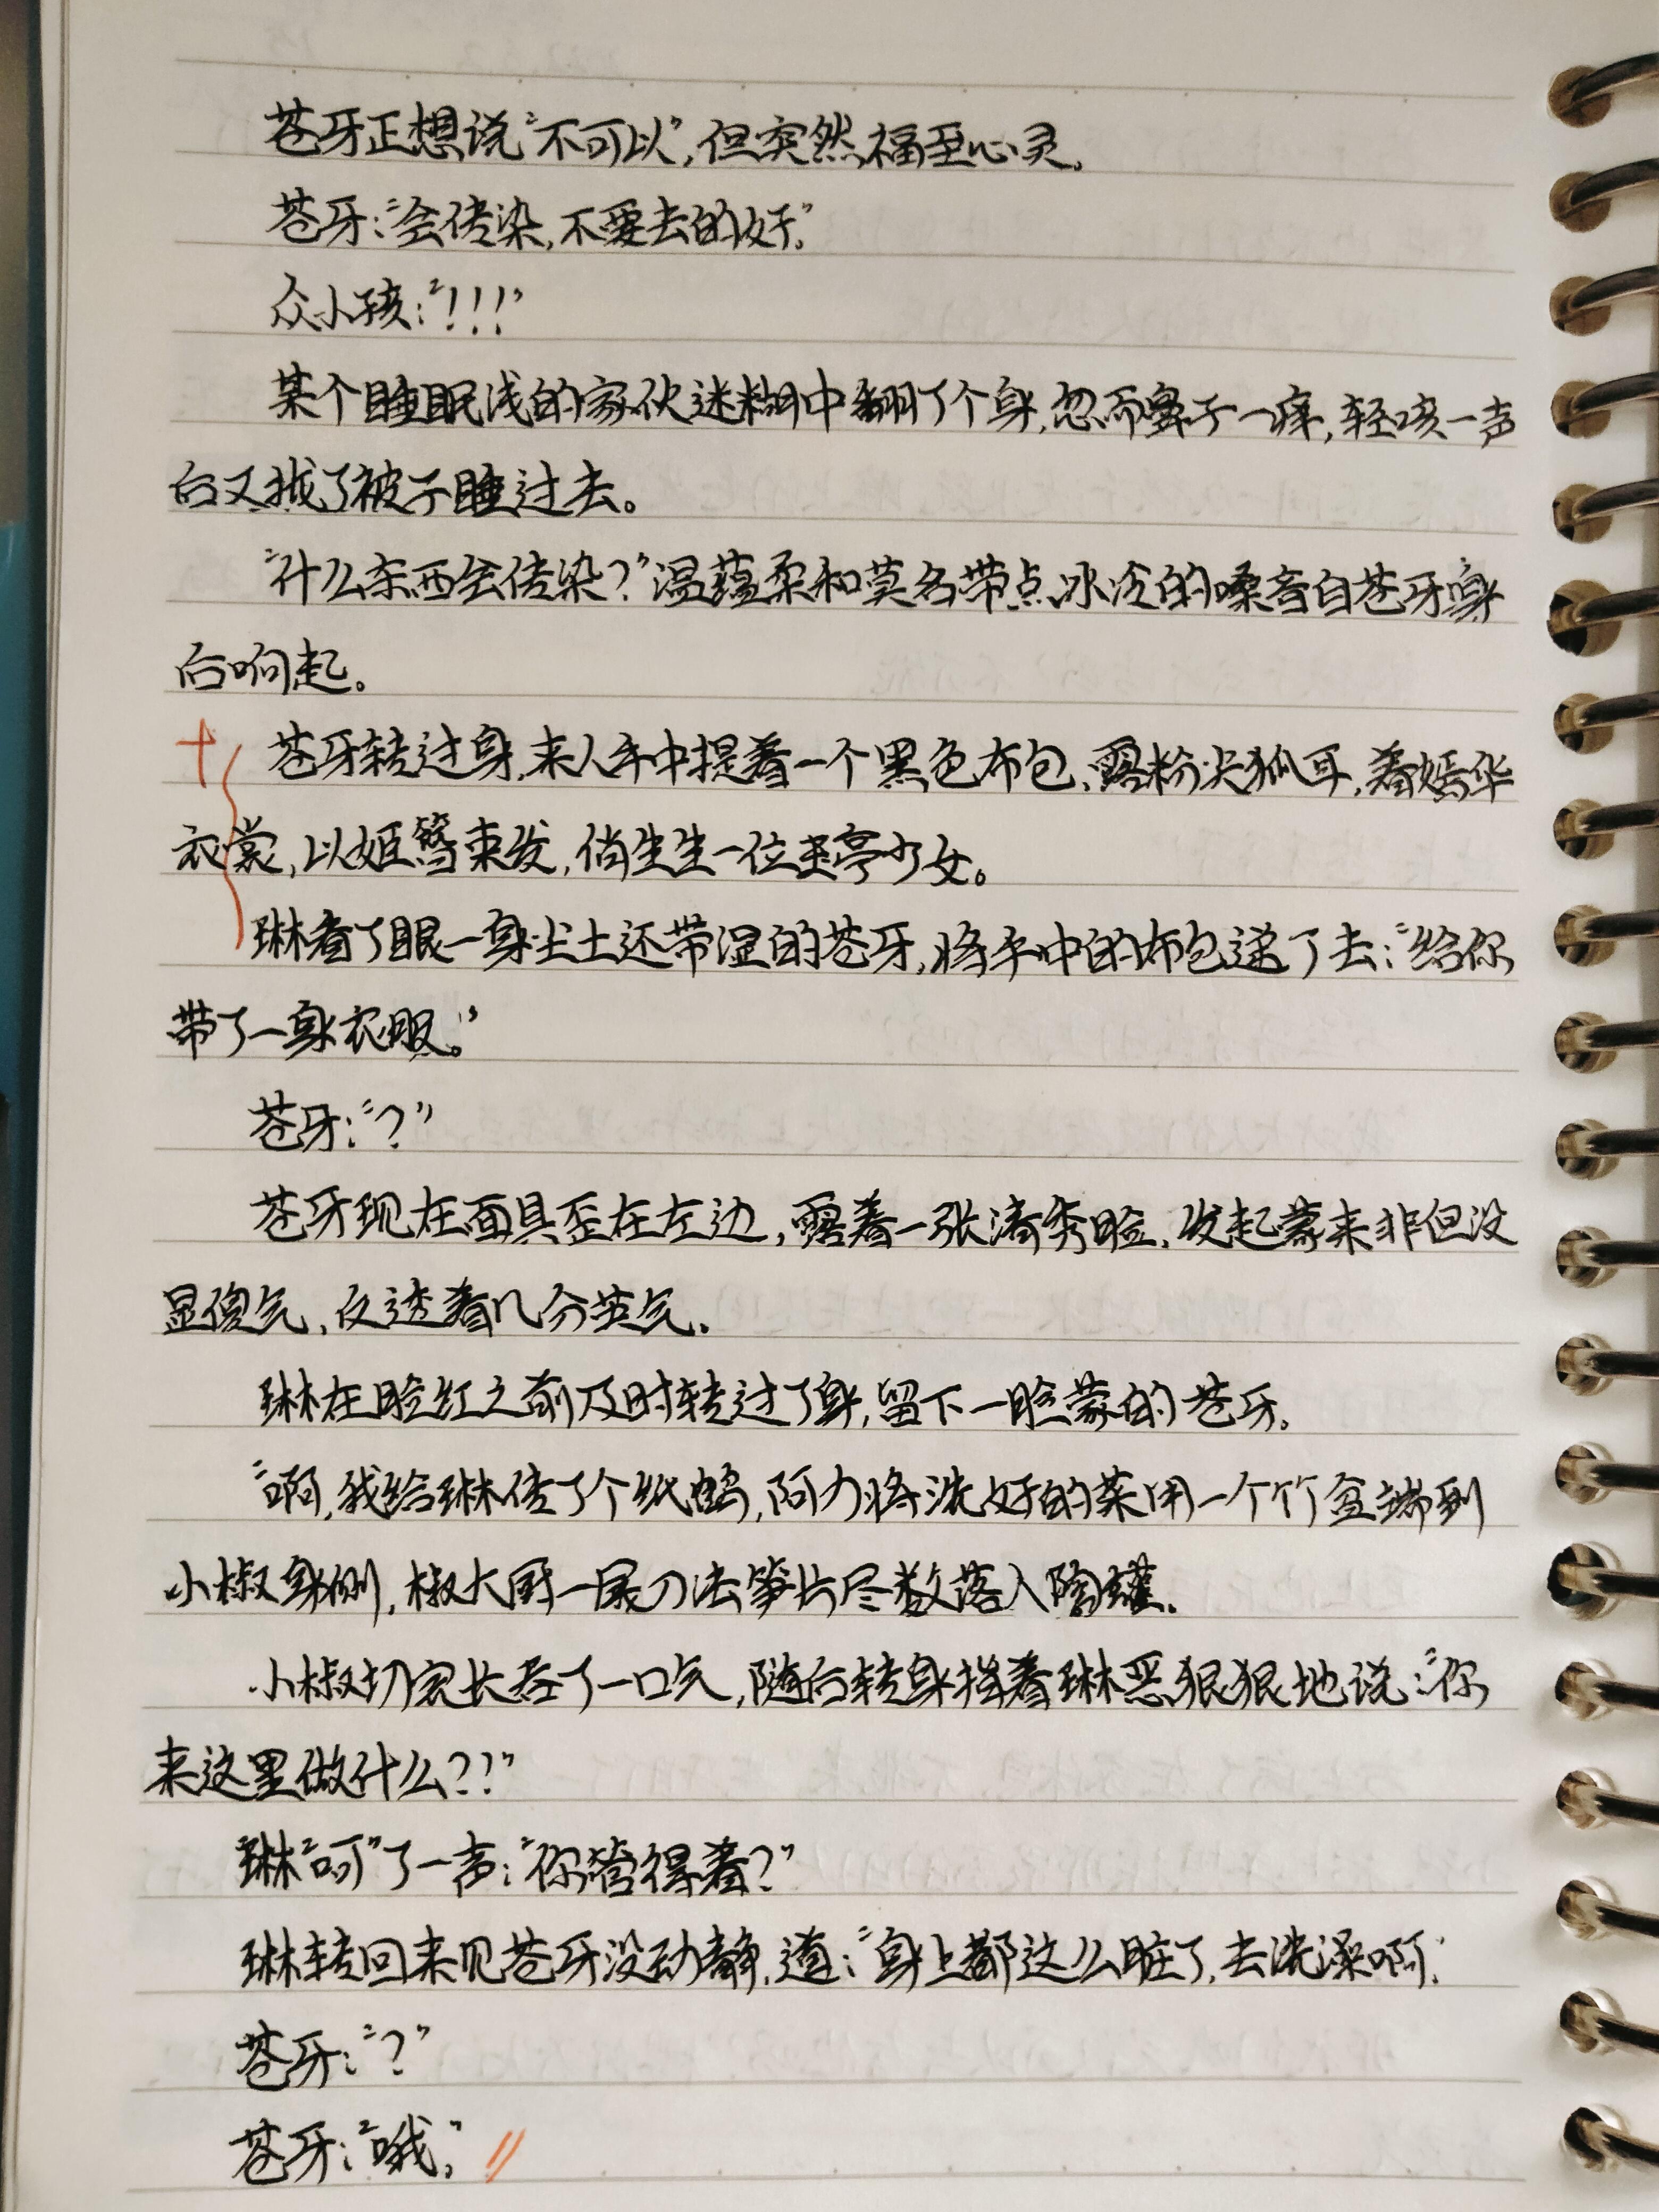 苍牙正想说“不可以”,但突然福至心灵。
苍牙:“会传染,不要去的好。”
众小孩:“!!!”
某个睡眠浅的家伙迷糊中翻了个身,忽而鼻子一痒,轻咳一声
后又拢了被子睡过去。
“什么东西会传染?”温蕴柔和莫名带点冰冷的嗓音自苍牙身
后响起。
苍牙转过身,来人手中提着一个黑色布包,露粉尖狐耳,着嫣华
衣裳,以姬簪束发,俏生生一位玉亭少女。
琳看了眼一身尘土还带湿的苍牙,将手中的布包递了去:“给你
带了一身衣服。”
苍牙:“?”
苍牙现在面具歪在左边,露着一张清秀脸,发起蒙来非但没
显傻气,反透着几分英气。
琳在脸红之前及时转过了身,留下一脸蒙的苍牙。
“啊,我给琳传了个纸鹤,阿力将洗好的菜用一个竹盆端到
小椒身侧,椒大厨一展刀法笋片尽数落入陶罐。
小椒切完长舒了一口气,随后转身指着琳恶狠狠地说:“你
来这里做什么?!”
琳“呵”了一声:“你管得着?”
琳转回来见苍牙没动静,道:“身上都这么脏了,去洗澡啊.
苍牙:“?”
苍牙:“哦。”